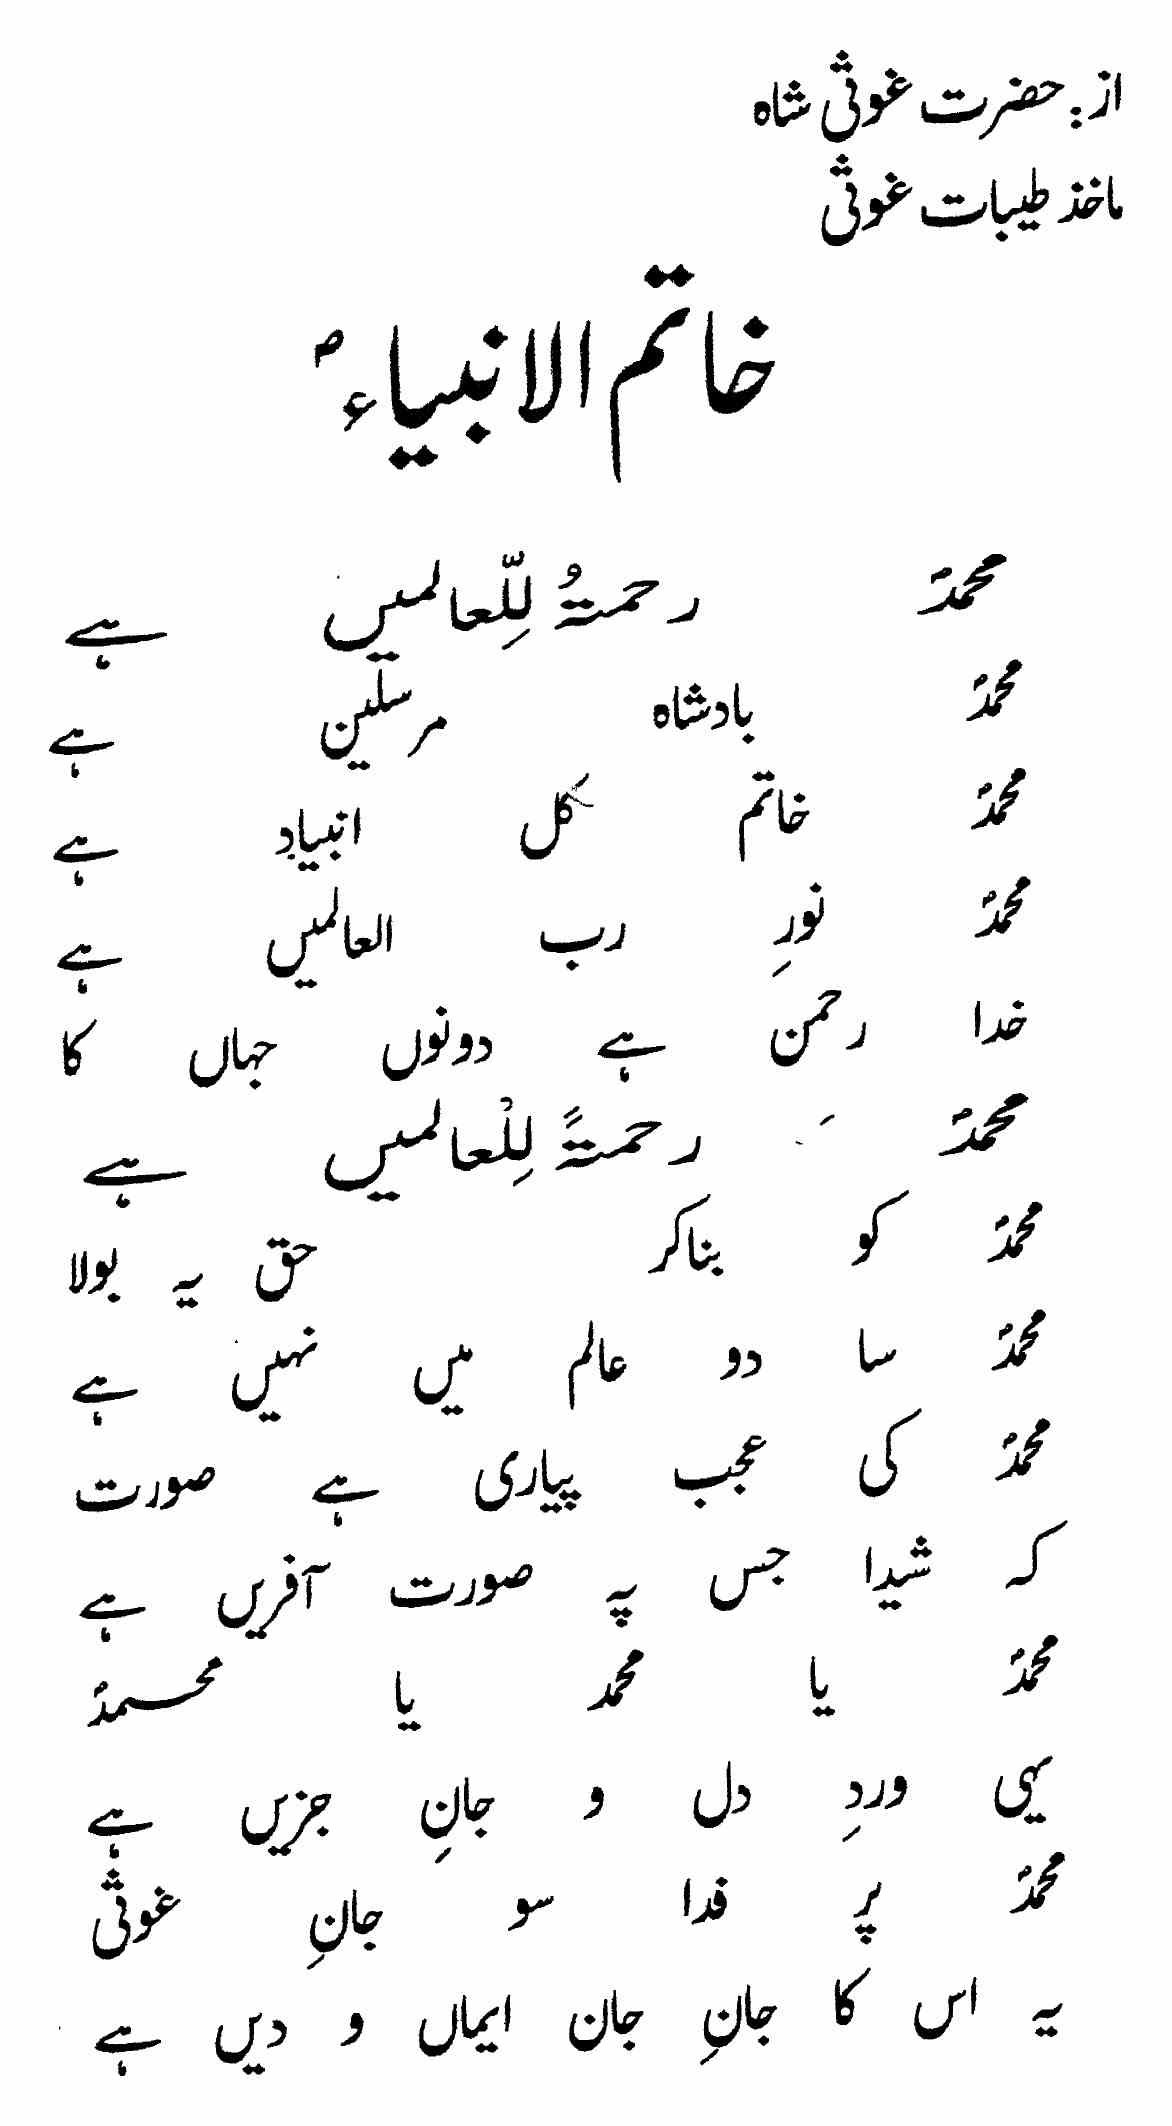 از: حضرت غوثی شاہ
ماخذ طیبات غوثی
خاتم الانبیاءؐ
محمدؐ رحمتہُ لِلّعالمیں ہے
محمدؐ بادشاہ مرسلین ہے
محمدؐ خاتم کل انبیاء ہے
محمدؐ نورِ رب العالمیں ہے
خدا رحمن ہے دونوں جہاں کا
محمدؐ رحمتہً لِلْعالمیں ہے
محمدؐ کو بناکر حق یہ بولا
محمدؐ سا دو عالم میں نہیں ہے
محمدؐ کی عجب پیاری ہے صورت
کہ شیدا جس پہ صورت آفریں ہے
محمدؐ یا محمد یا محمدؐ
یہی وردِ دل و جانِ جزیں ہے
محمدؐ پر فدا سو جانِ غوثی
یہ اس کا جانِ جان ایماں و دیں ہے